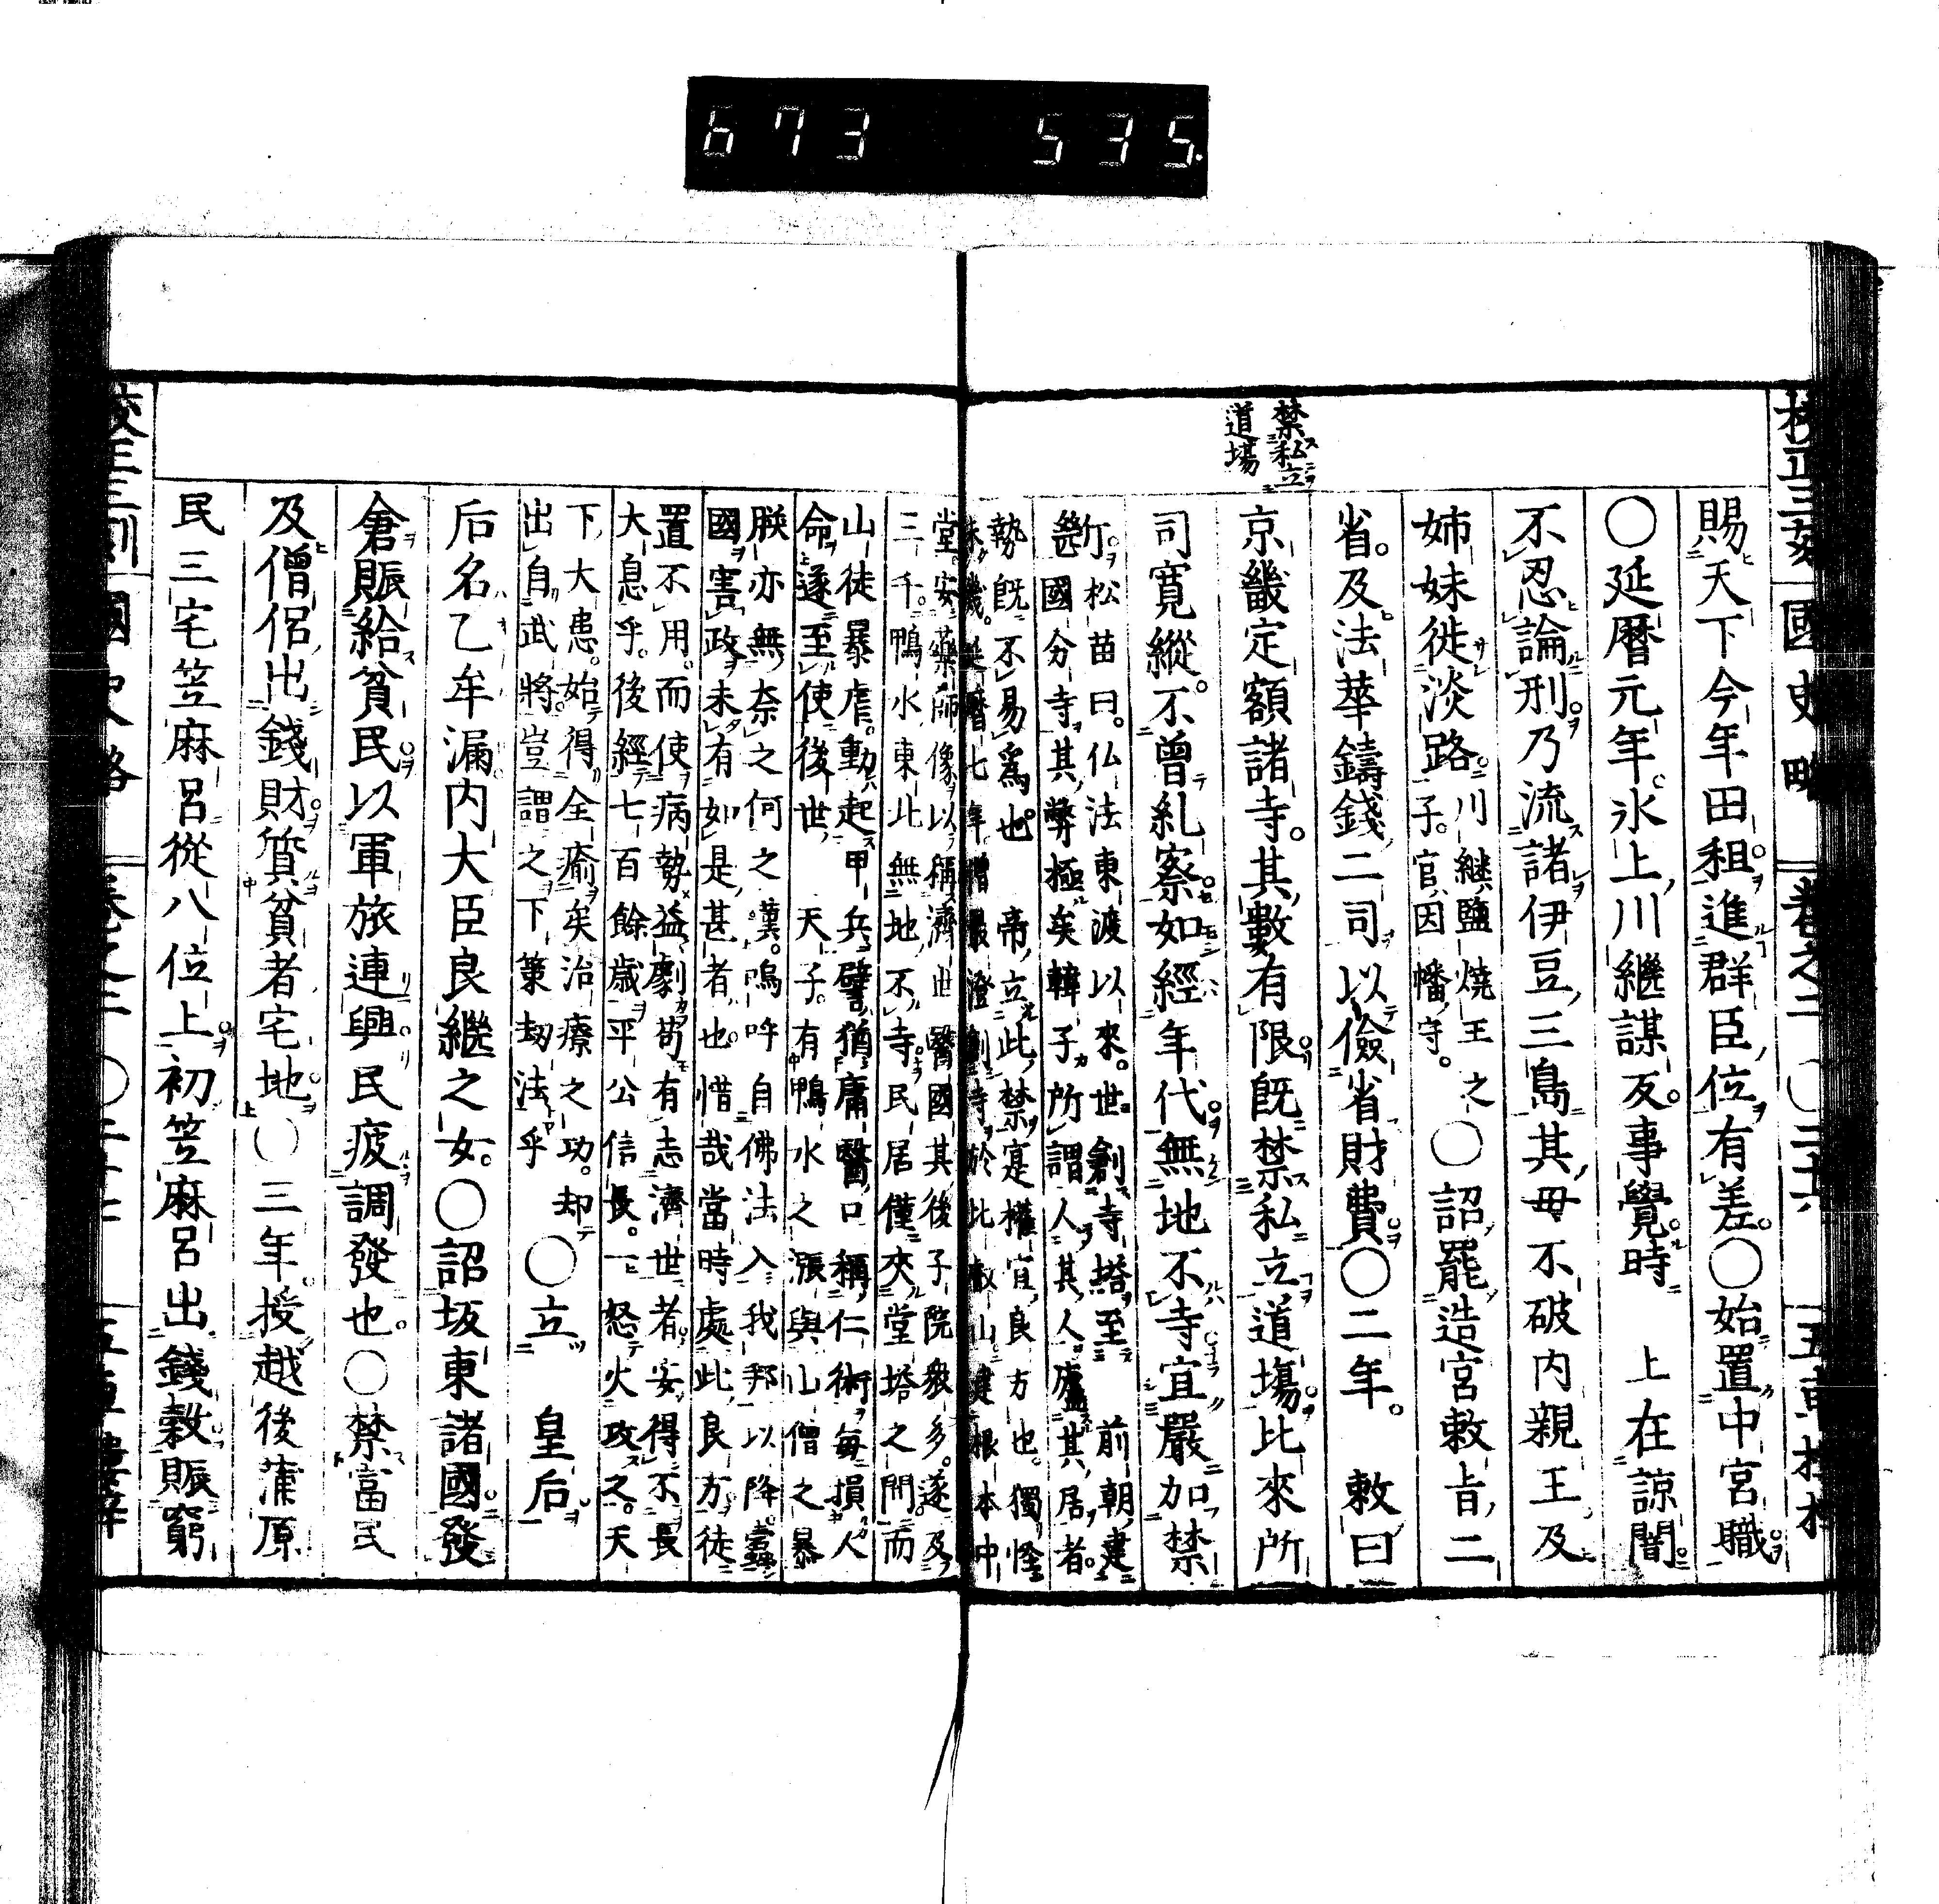 673 535
國史略 卷之二 〇二十六 五車
禁私立
道場
賜天下今年田租進群臣位有差〇始置中宮職
〇延曆元年氷上川繼謀反事覺時 上在諒闇
不忍論刑乃流諸伊豆三島其母不破內親王及
姉妹徙淡路川繼鹽燒王之
子官因幡守〇詔罷造宮敕旨二
省及法華鑄錢二司以儉省財費〇二年 敕曰
京畿定額諸寺其數有限既禁私立道場比來所
司寬縱不曾糺察如經年代無地不寺宜嚴加禁
松苗曰仏法東渡以來世創寺塔至 前朝建
國分寺其弊極矣韓子所謂人其人廬其居者
勢既不易爲也 帝立此禁寔權宜良方也獨怪
延曆七年僧最澄創寺於比叡山建根本中
堂安藥師像以稱濟世醫國其後子院衆多遂及
三千鴨水東北無地不寺民居僅夾堂塔之間而
山徒暴虐動起甲兵譬猶庸醫口稱仁術每損人
命遂至使後世 天子有鴨水之漲與山僧之暴
朕亦無奈之何之漢嗚呼自佛法入我邦以降蠹
國害政未有如是甚者也惜哉當時處此良方徒
置不用而使病勢益劇苟有志濟世者安得不長
大息乎後經七百餘歲平公信長一怒火攻之天
下大患始得全瘉矣治療之功却
出自武將豈謂之下策劫法乎〇立 皇后
后名乙牟漏內大臣良繼之女〇詔坂東諸國發
倉賑給貧民以軍旅連興民疲調發也〇禁富民
及僧侶出錢財質貧者宅地〇三年授越後蒲原
民三宅笠麻呂從八位上初笠麻呂出錢穀賑窮